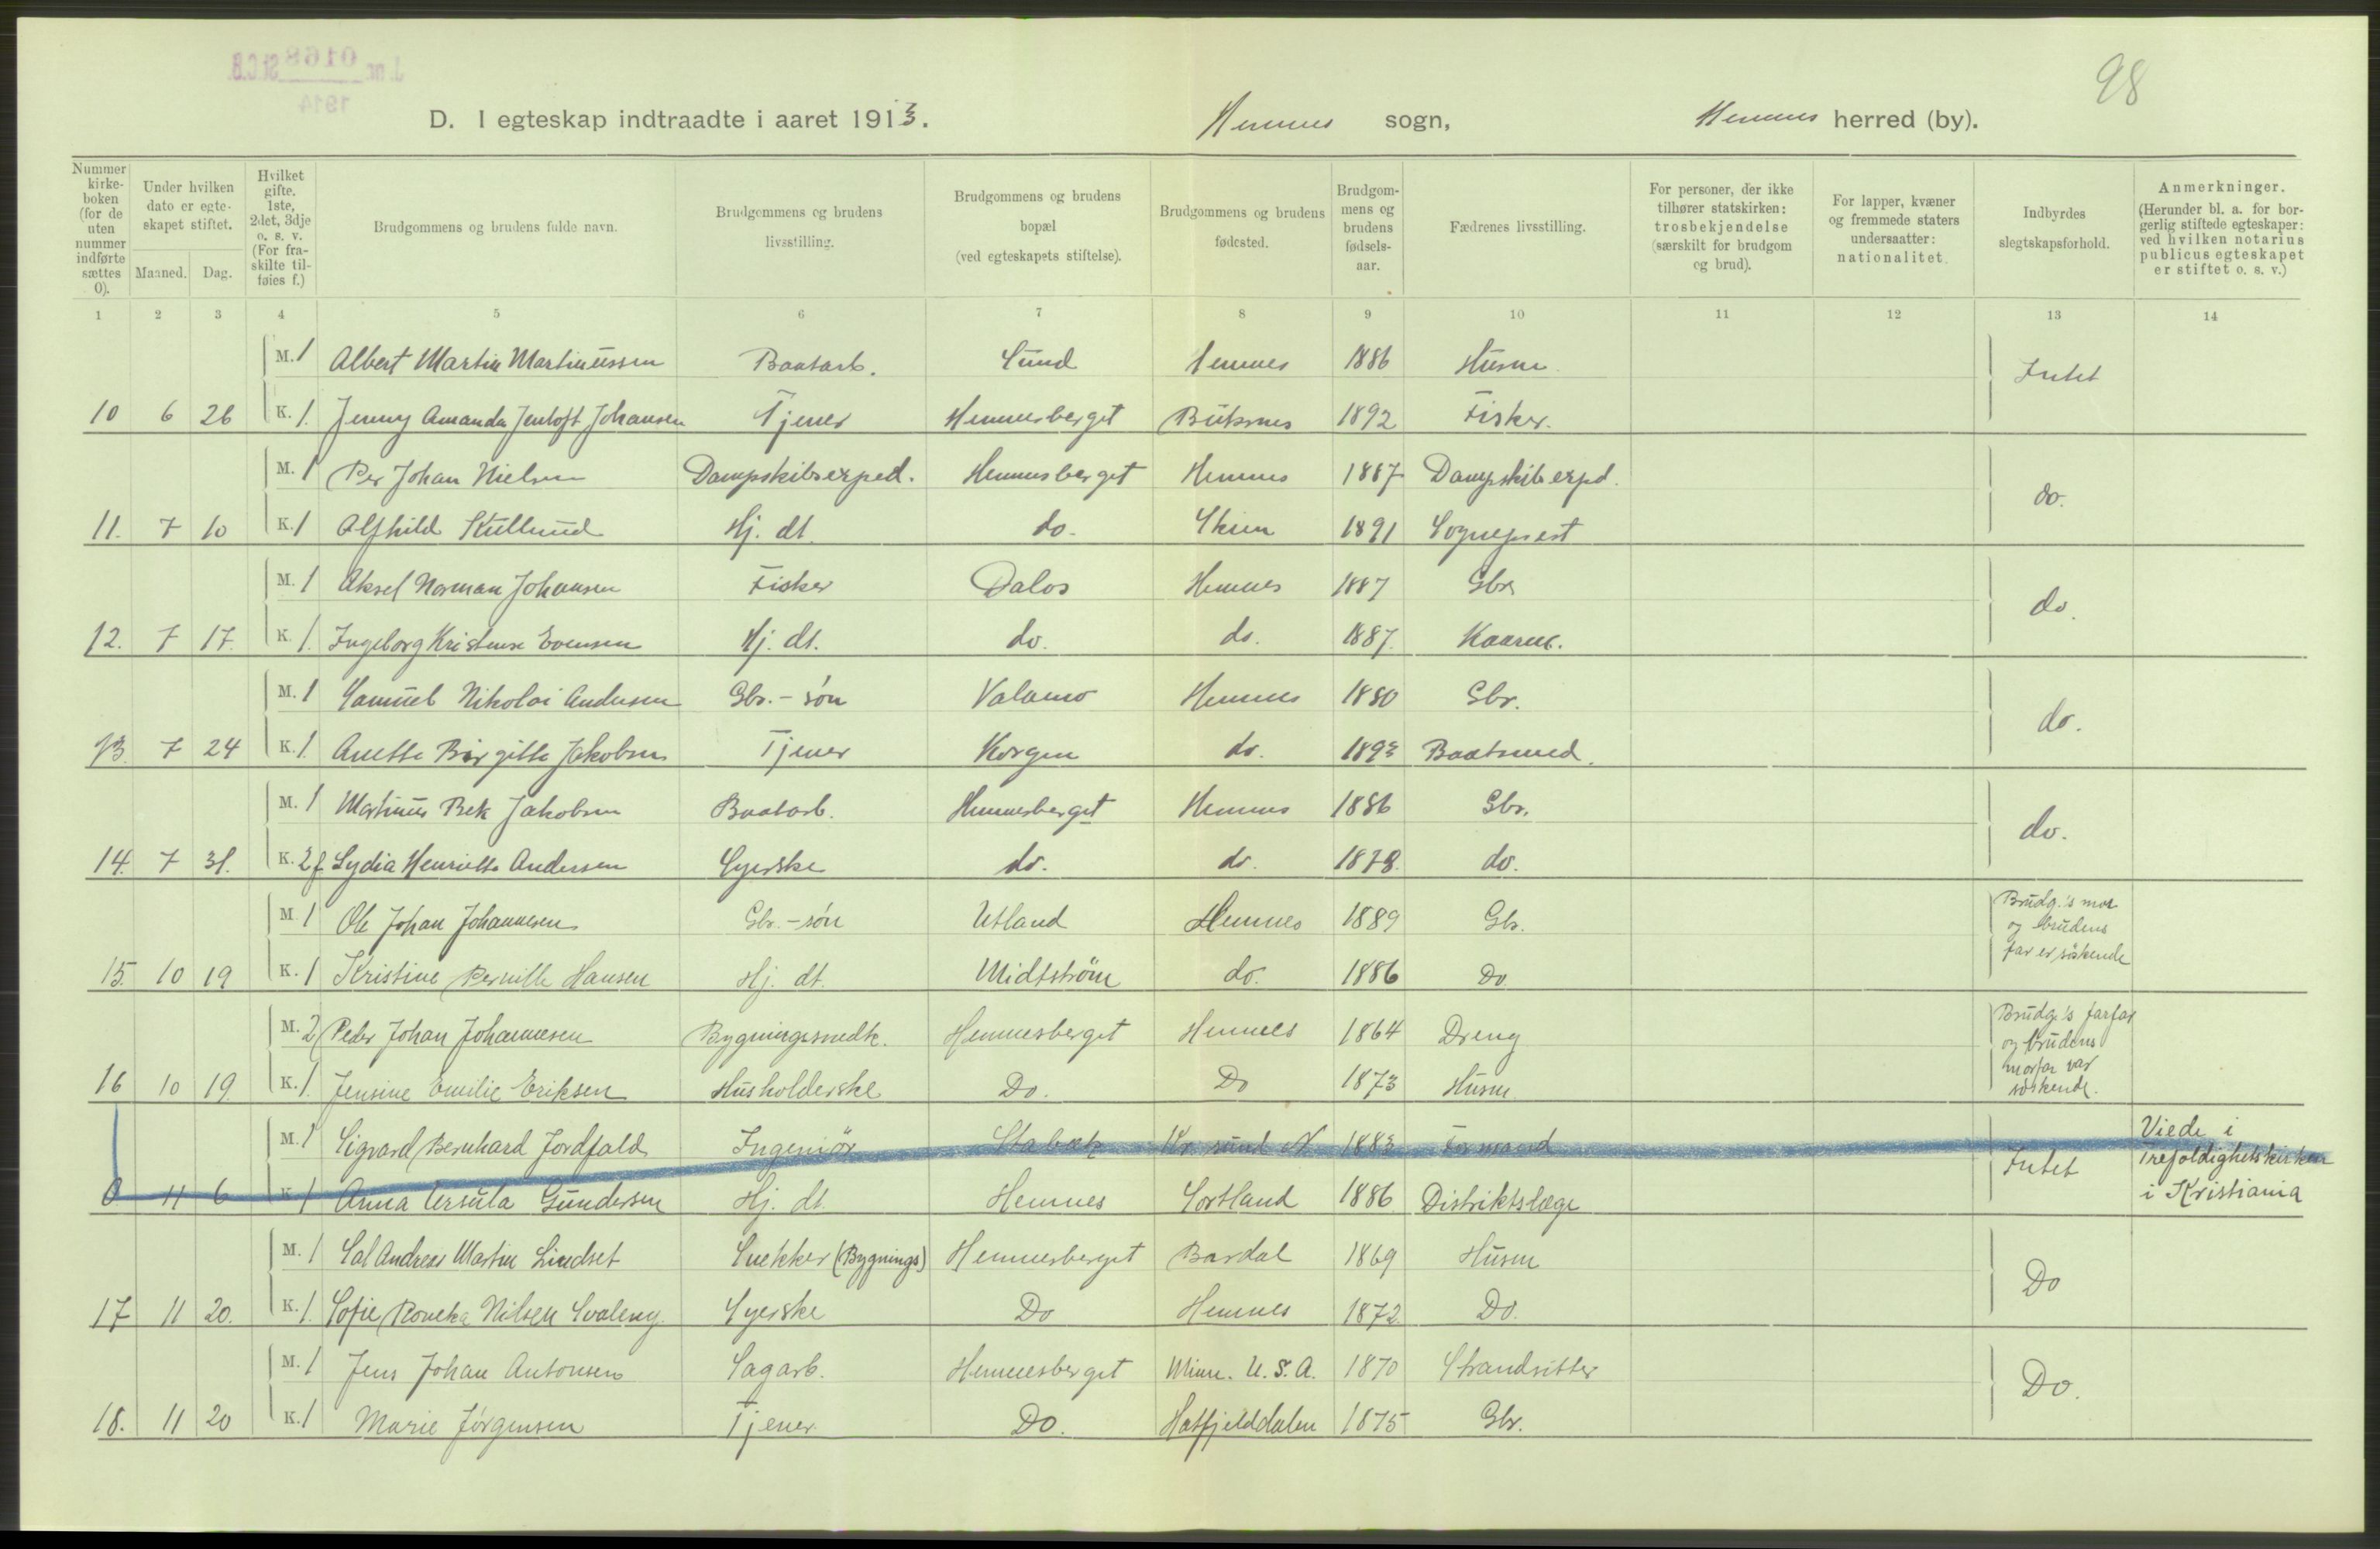 98
D. I egteskap indtraadte i aaret 1913. Hemnes sogn, Hemnes herred (by).
Nummer kirkeboken (for de uten nummer indførte sættes 0).
Under hvilken dato er egteskapet stiftet.
Maaned. Dag.
Hvilket gifte. 1ste, 2det, 3dje o. s. v. (For fraskilte tilføies f.)
Brudgommens og brudens fulde navn.
Brudgommens og brudens livsstilling.
Brudgommens og brudens bopæl (ved egteskapets stiftelse).
Brudgommens og brudens fødested.
Brudgommens og brudens fødselsaar.
Fædrenes livsstilling.
For personer, der ikke tilhører statskirken: trosbekjendelse (særskilt for brudgom og brud).
For lapper, kvæner og fremmede staters undersaatter: nationalitet.
Indbyrdes slegtskapsforhold.
Anmerkninger. (Herunder bl. a. for borgerlig stiftede egteskaper: ved hvilken notarius publicus egteskapet er stiftet o. s. v.)
1 2 3 4 5 6 7 8 9 10 11 12 13 14
M. 1 Albert Martin Martinussen Baatarb. Sund Hemnes 1886 Husm. Intet
10 6 26 K. 1. Jenny Amanda Jentoft Johansen Tjener Hemnesberget Buksnes 1892 Fisker.
M. 1 Per Johan Nielsen Dampskibsexped. Hemnesberget Hemnes 1887 Dampskibsexped. do.
11. 7 10 K. 1 Alfhild Kullund Hj. dt. do. Skien 1891 Sogneprest
M. 1 Aksel Norman Johansen Fisker Dalos Hemnes 1887 Gbr. do.
12. 7 17. K. 1. Ingeborg Kristense Evensen Hj. dt. do. do. 1887.
M. 1 Samuel Nikolai Andersen Gbr. - søn Hemnes 1880 Gbr. do.
13. 7 24 K. 1. Anette Birgitte Jakobsen Tjener Korgen do. 1893 Baatsmed.
M. 1 Martinus Bek Jakobsen Baatarb. Hemnesberget Hemnes 1886 Gbr. do.
14. 7 31. K. 2 f Lydia Henriette Andersen Syerske do. do. 1878. do.
M. 1 Ole Johan Johannesen Gbr. - søn Utland Hemnes 1889 Gb. Brudg.'s mor og brudens far er søskende
15. 10 19 K. 1 Kristine Pernille Hansen Hj. dt. Midtstrøm do. 1886 Do
M. 2 Peder Johan Johannesen Bygningssnedk. Hemnesberget Hemnes 1864 Dreng Brudg.'s farfar og brudens morfar var søskende.
16 10 19. K. 1. Jensine Emilie Eriksen Husholderske Do. Do 1873 Husm.
M. 1 Sigvard Bernhard Jordfald Ingeniør Stabæk Kr. sund N 1883 Formand Intet Viede i Trefoldighetskirken i Kristiania
0 11 6 K. 1 Anna Ursula Gundersen Hj. dt. Hemnes Sortland 1886 Distriktslæge
M. 1 Sal Andreas Martin Lindset Snekker (Bygnings) Hemnesberget Bardal 1869 Husm Do
17 11 20. K. 1. Sofie Nilsen Svaleng Syerske Do Hemnes 1872. Do.
M. 1 Jens Johan Antonsen Sagarb. Hemnesberget Minn. U.S.A. 1870 Strandsitter Do.
18. 11 20 K. 1 Marie Jørgensen Tjener Do. Hatfjelddalen 1875 Gbr.